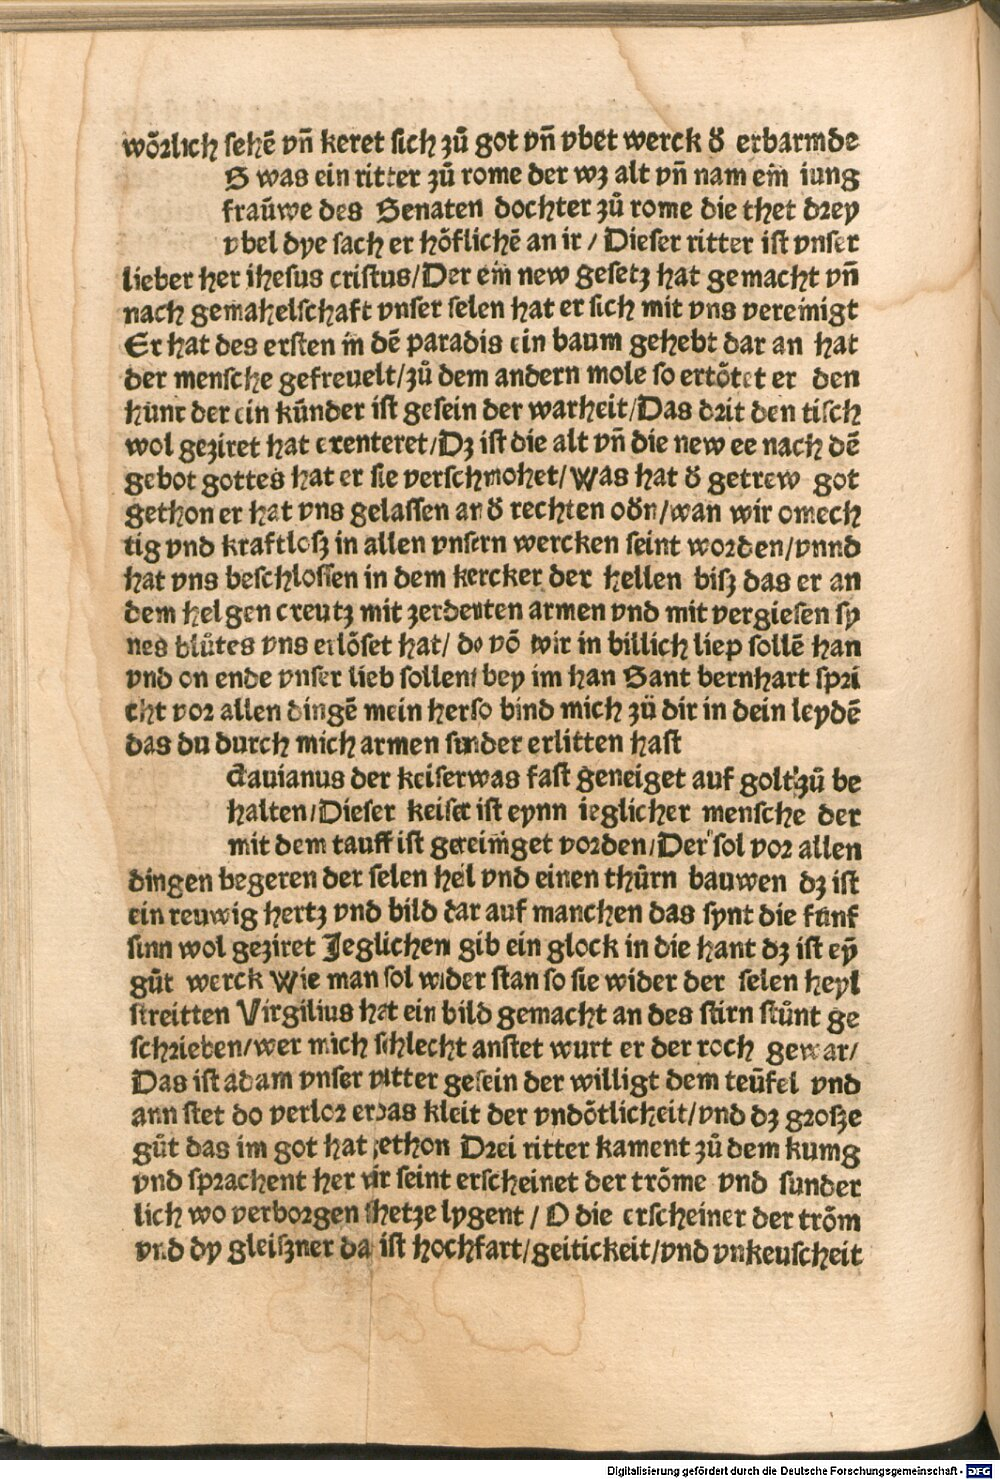 wőrlich sehē vñ keret sich zů got vñ vbet werck ď erbarmde
S was ein ritter zů rome der wz alt vñ nam ein iung
fraůwe des Senaten dochter zů rome die thet drey
vbel dye sach er hőflichē an ir / Dieser ritter ist vnser
lieber her ihesus cristus/Der ein new gesetz hat gemacht vñ
nach gemahelschaft vnser selen hat er sich mit vns vereinigt
Er hat des ersten in dē paradis ein baum gehebt dar an hat
der mensche gefreuelt/zů dem andern mole so ertőtet er den
hunt der ein kůnder ist gesein der warheit/Das drit den tisch
wol geziret hat erenteret/Dz ist die alt vñ die new ee nach dē
gebot gottes hat er sie verschmohet/Was hat ď getrew got
gethon er hat vns gelassen an ď rechten oďn/wan wir omech
tig vnd kraftlosz in allen vnsern wercken seint worden/vnnd
hat vns beschlossen in dem kercker der hellen bisz das er an
dem helgen creutz mit zerdenten armen vnd mit vergiesen sy
nes blůtes vns erlőset hat/ do vō wir in billich liep sollē han
vnd on ende vnser lieb sollent bey im han Sant bernhart spri
cht vor allen dingē mein herso bind mich zů dir in dein leydē
das du durch mich armen sunder erlitten hast
Ctauianus der keiserwas fast geneiget auf golt zů be
halten/Dieser keiser ist eynn ieglicher mensche der
mit dem tauff ist gereiniget vorden/Der sol vor allen
dingen begeren der selen heil vnd einen thůrn bauwen dz ist
ein reuwig hertz vnd bild dar auf manchen das synt die funf
sinn wol geziret Jeglichem gib ein glock in die hant dz ist eȳ
gůt werck Wie man sol wider stan so sie wider der selen heyl
streitten Virgilius hat ein bild gemacht an des stirn stůnt ge
schrieben/wer mich schlecht anstet wurt er der roch gewar/
Das ist adam vnser vatter gesein der willigt dem teůfel vnd
ann stet do verlor er das kleit der vndőtlicheit/vnd dz grosze
gůt das im got hat gethon Drei ritter kament zů dem kunig
vnd sprachent her wir seint erscheinet der trőme vnd sunder
lich wo verborgen schetze lygent / O die erscheiner der trőm
vnd dy gleiszner da ist hochfart/geitickeit/vnd vnkeuscheit
Digitalisierung gefördert durch die Deutsche Forschungsgemeinschaft - DFG